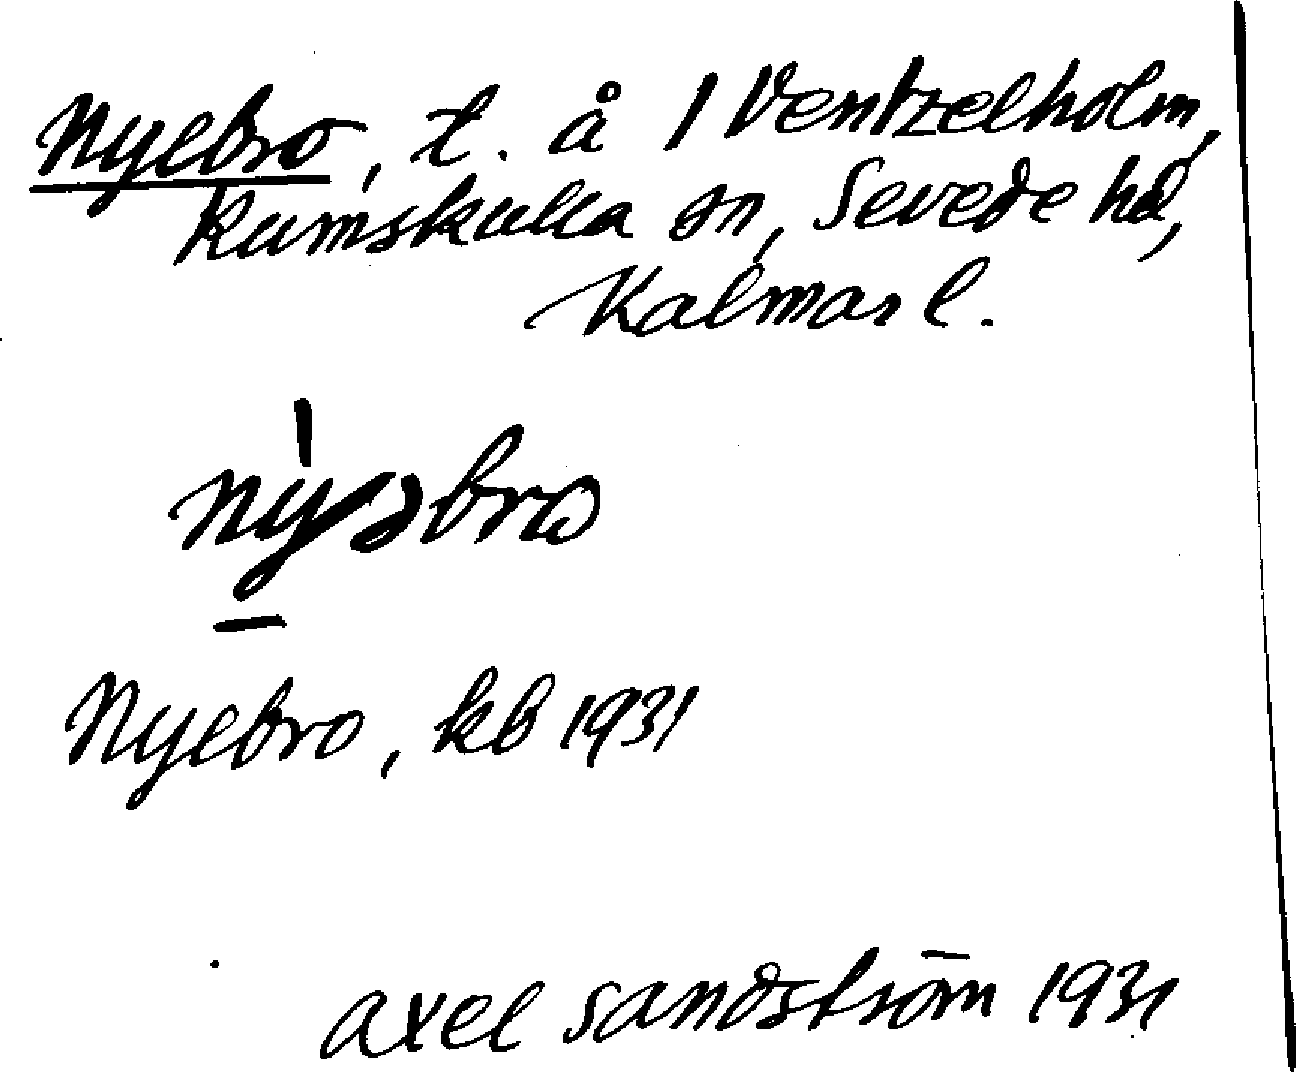 Nyebro, t. å 1 Ventzelholm,
Rumskulla sn, Sevede hd,
Kalmar l.
nyəbro
Nyebro, kb 1931
Axel Sandström 1931